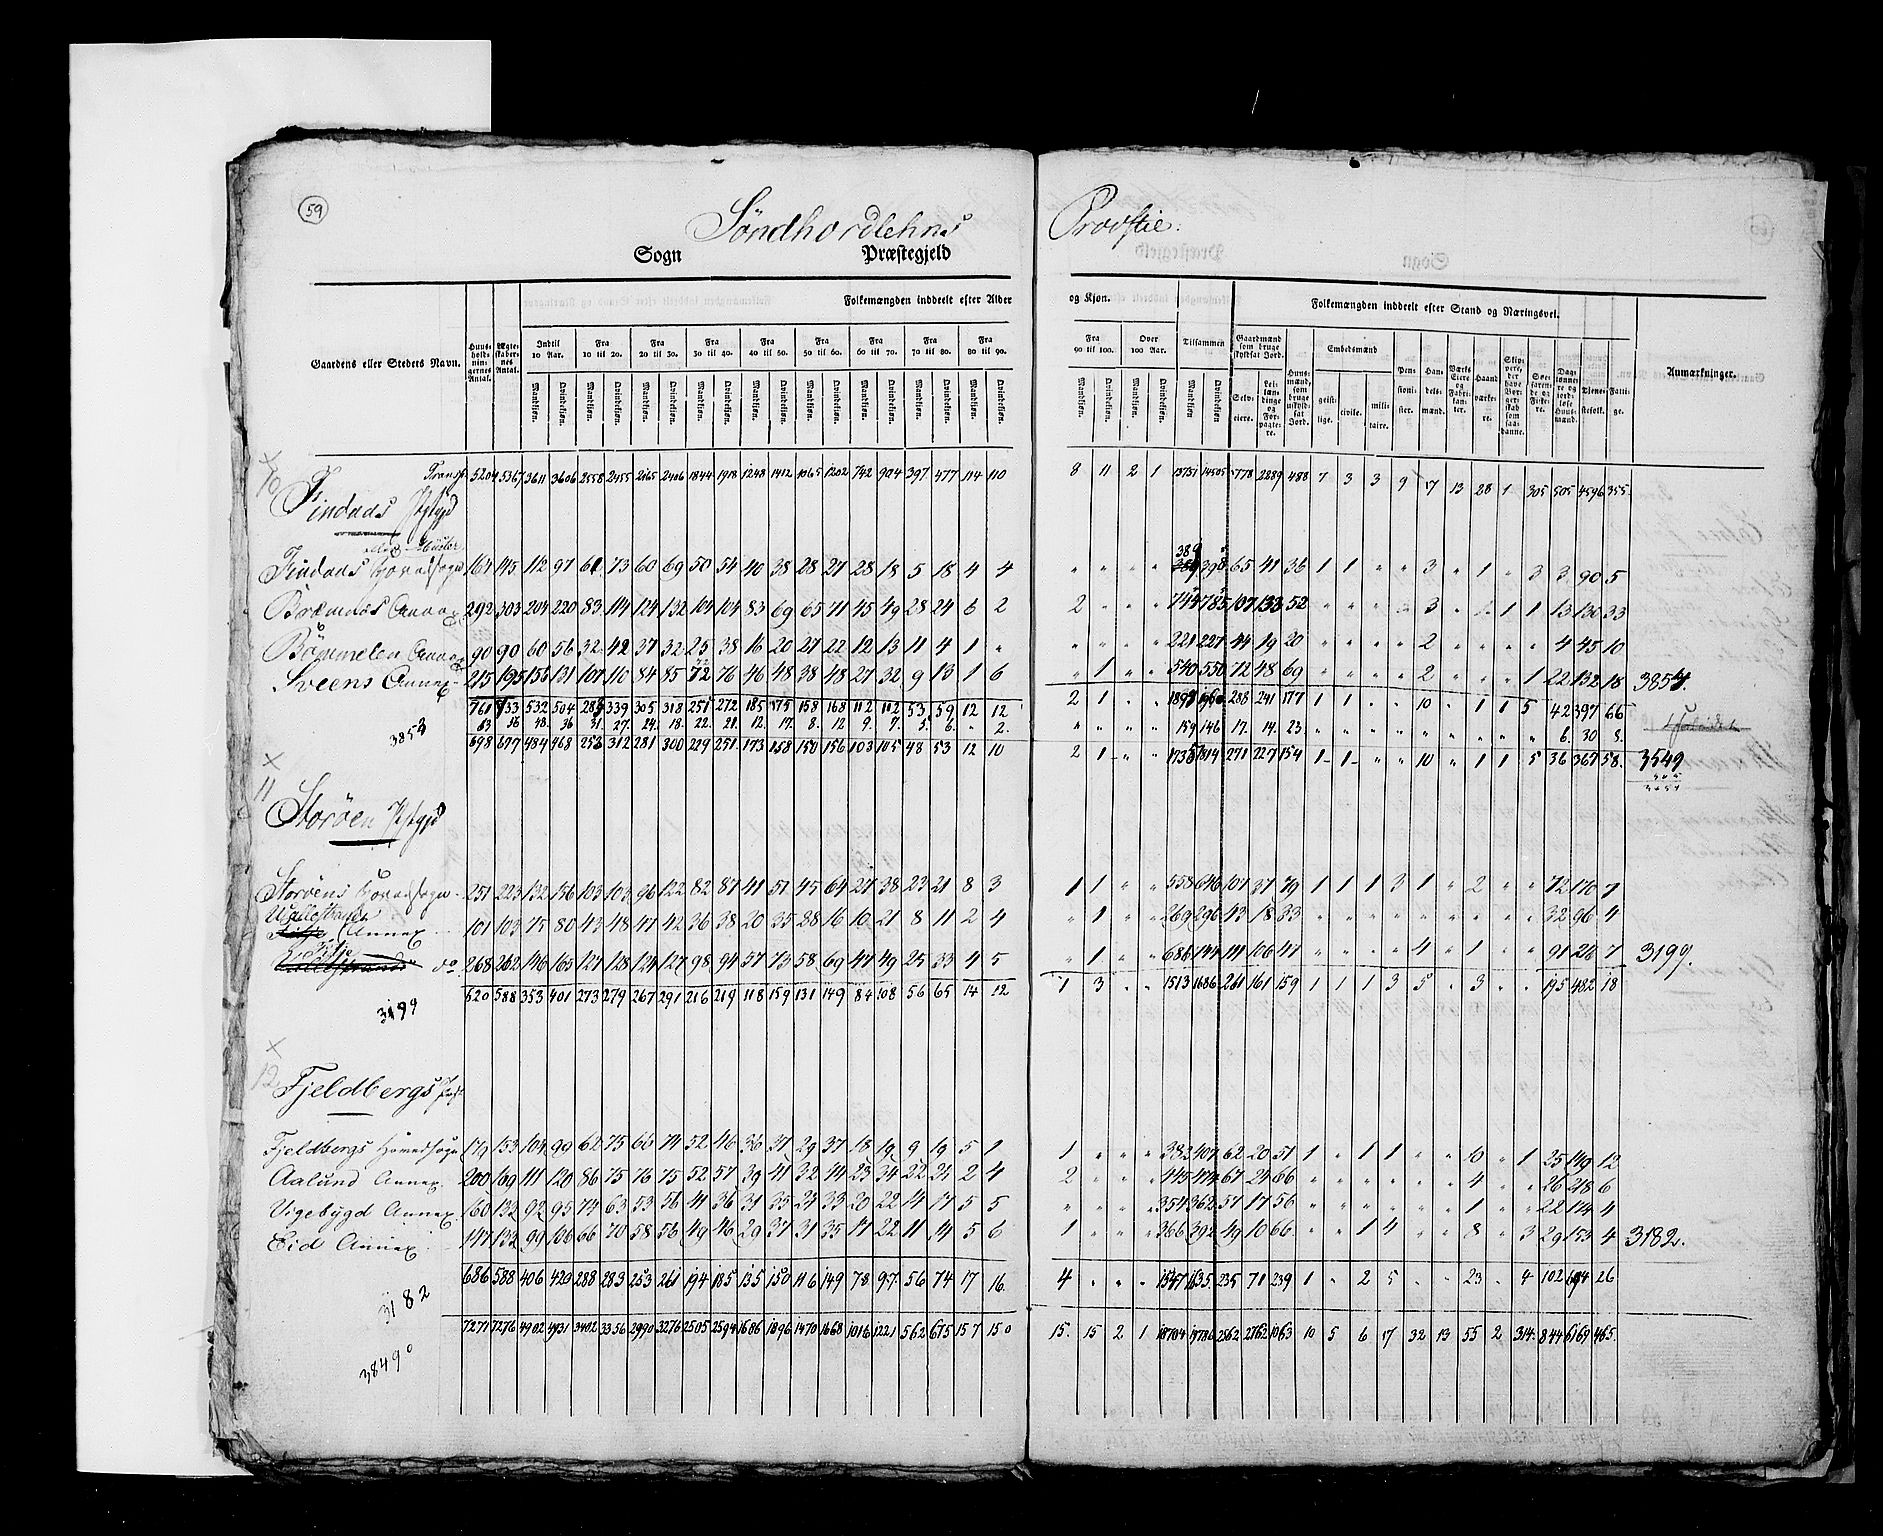 59
Söndhordlehns Provstie.
Sogn Præstegjeld
Gaardens eller Stedets Navn.
Huus-holdningernes Antal.
Ægteskabernes Antal.
Folkemængden inddeelt efter Alder og Kjøn.
Indtil 10 Aar. Fra 10 til 20. Fra 20 til 30. Fra 30 til 40. Fra 40 til 50. Fra 50 til 60. Fra 60 til 70. Fra 70 til 80. Fra 80 til 90. Fra 90 til 100. Over 100 Aar. Tilsammen
Mandkjøn. Qvindekjøn.
Folkemængden inddeelt efter Stand og Næringsvei.
Gaardmænd som bruge skyldsat Jord.
Selveiere.
Leilændinge og Forpagtere.
Huusmænd, som bruge uskyldsat Jord.
Embedsmænd
geistlige. civile. militaire.
Pensionister.
Handelsmænd.
Værks Eiere og Fabrikanter.
Haandværkere.
Skippere, der have Borgerskab som saadanne.
Søefarende og Fiskere.
Daglønnere og jordløse Huusmænd.
Tjenestefolk.
Fattige.
Anmærkninger.
Transp. 5204 5367 3611 3606 2558 2455 2165 2406 1844 1918 1248 1412 1065 1202 742 904 397 477 114 110 8 11 2 1 13751 14505 1778 2289 488 7 3 3 9 17 13 28 1 305 505 4596 355
10
Findaas Pstgjd
Findaas Hovedsogn 164 145 112 97 61 73 60 69 50 54 40 38 28 27 28 18 5 18 4 4 " " " " 389 398 65 41 36 1 1 " " 3 " 1 " 3 3 90 5
Bremnes Annex 292 303 204 220 83 114 124 132 104 104 83 69 65 71 45 49 28 24 6 2 2 " " " 744 785 107 133 52 " " " " 3 " 1 1 1 13 130 33
Bömmelen Annex 90 90 60 56 32 42 37 32 25 38 16 20 27 22 12 13 11 4 1 " " " " " 221 227 44 19 20 " " " " 2 " " " " 4 45 10
Sveens Annex 215 195 156 131 107 110 84 85 72 76 46 48 38 48 27 32 9 13 1 6 " 1 " " 540 550 72 48 69 " " " " 2 " " " 1 22 132 18 3854.
761 733 532 504 283 339 305 318 251 272 185 175 158 168 112 112 53 59 12 12 2 1 " " 1893 1960 288 241 177 1 1 " " 10 " 1 1 5 42 397 66
3853
63 56 48 36 31 27 24 18 22 21 12 17 8 12 9 7 5 6 " 2 " " " " 159 146 17 14 23 " " " " " " " " " 6 30 8
698 677 484 468 252 312 281 300 229 251 173 158 150 156 103 105 48 53 12 10 2 1 " " 1735 1814 271 227 154 1 1 " " 10 " 1 1 5 36 367 58. 3549
11
Storöen Pstgjd
Storöens Hovedsogn 251 223 132 156 103 103 96 122 82 87 41 51 45 64 27 38 23 21 8 3 1 1 " " 558 646 107 37 79 1 1 1 3 1 " 2 " " 72 170 7
Annex 101 103 75 80 43 48 47 42 36 38 20 35 28 16 10 21 8 11 2 4 " 1 " " 269 296 43 18 33 " " " " " " " " " 32 96 4
do 268 262 146 165 127 128 124 127 98 94 57 73 58 69 47 49 25 33 4 5 " 1 " " 686 744 111 106 47 " " " " 4 " 1 " " 91 26 7 3199.
620 588 353 401 273 279 267 291 216 219 118 159 131 149 84 108 56 65 14 12 1 3 " " 1513 1686 261 161 159 1 1 1 3 5 " 3 " " 195 482 18
3199
12
Fjeldbergs Pst
Fjeldbergs Hovedsogn 179 153 104 99 62 75 66 74 52 46 36 37 29 37 18 19 9 19 5 1 1 " " " 382 407 62 20 51 1 " 1 1 " " 10 " 1 25 149 12
Aalund Annex 200 169 111 120 86 75 76 75 52 57 39 41 32 44 23 34 22 21 2 4 2 " " " 445 474 67 24 66 " " " " " " 4 " " 26 218 6
Vigebygd Annex 160 132 92 95 74 63 53 56 41 36 31 35 24 33 20 22 14 17 5 5 " " " " 354 362 57 17 56 " " " " " " 1 " " 22 174 4
Eid Annex 147 132 99 106 66 70 58 56 49 46 29 37 31 35 17 22 11 14 5 6 1 " " " 366 392 49 10 66 " " 1 4 " " 8 " 3 29 153 4 3182.
686 588 406 420 288 283 253 261 194 185 135 150 116 149 78 97 56 74 17 16 4 " " " 1547 1635 235 71 239 1 " 2 5 " " 23 " 4 102 694 26
3182
7271 7276 4902 4931 3402 3356 2990 3276 2505 2594 1686 1896 1470 1668 1016 1221 562 675 157 150 15 15 2 1 18704 19786 2862 2762 1063 10 5 6 17 32 13 55 2 314 844 6169 465.
38490